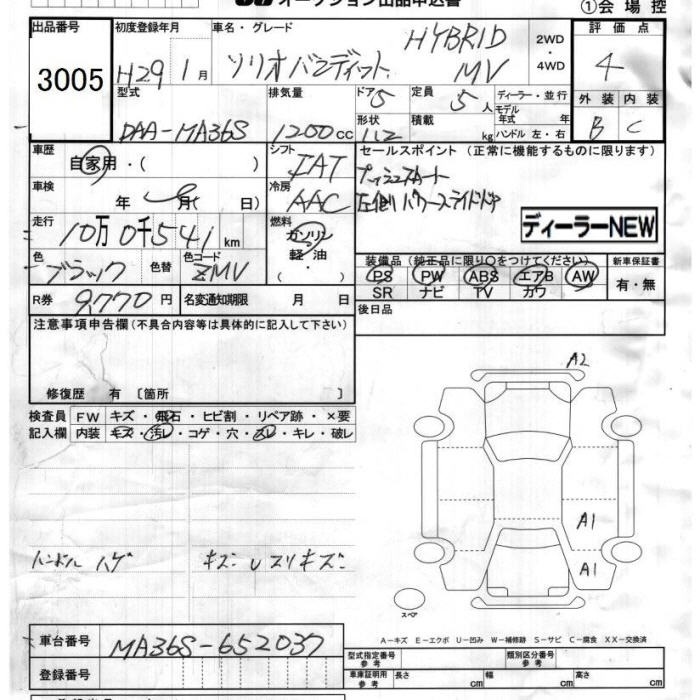 オークション出品申込書
①会場控
出品番号 初度登録年月 車名・グレード 評価点
3005
H29 1月 ソリオバンディット HYBRID MV 2WD・4WD 4
型式 排気量 ドア 5 定員 5人 ディーラー・並行 外装 内装
モデル年式 年
DAA-MA36S 1200cc 形状 積載 kg ハンドル 左・右 B C
車歴 シフト セールスポイント (正常に機能するものに限ります)
自家用・( ) IAT プッシュスタート
車検 年 月( 日) 冷房 AAC 左側パワースライドドア
ディーラーNEW
走行 10万0千541km 燃料 ガソリン・軽油
色 色替 色コード 装備品 (純正品に限り○をつけてください) 新車保証書
ブラック ZMV PS PW ABS エアB AW 有・無
SR ナビ TV カワ
R券 9,770円 名変通知期限 月 日
後日品
注意事項申告欄(不具合内容等は具体的に記入して下さい)
修復歴 有 〔箇所 〕
A2
検査員 FW キズ・飛石・ヒビ割・リペア跡・×要
記入欄 内装 キズ・汚レ・コゲ・穴・スレ・キレ・破レ
A1
ハンドル ハゲ キズ・Uスリキズ
A1
スペア
車台番号 MA36S-652037
A-キズ E-エクボ U-凹み W-補修跡 S-サビ C-腐食 XX-交換済
型式指定番号 参考 類別区分番号 参考
登録番号 車庫証明用 参考 長さ cm 幅 cm 高さ cm